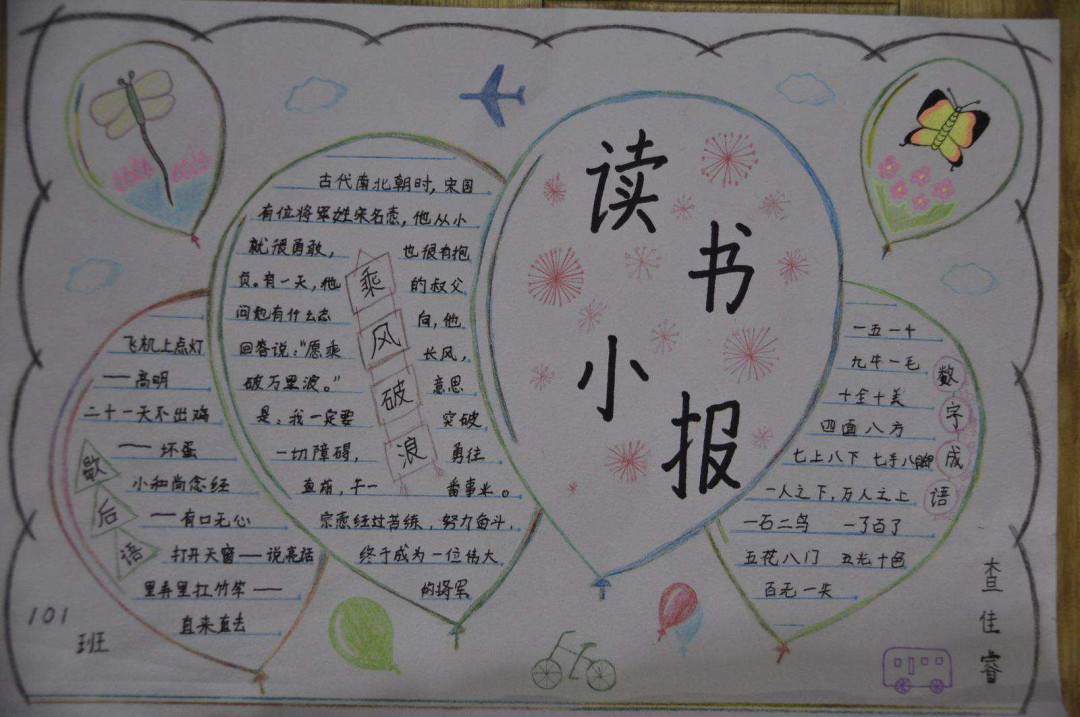 读书小报
乘风破浪
古代南北朝时,宋国
有位将军姓宋名悫,他从小
就很勇敢, 也很有抱
负。有一天,他 的叔父
问他有什么志 向,他
回答说:“愿乘 长风,
破万里浪。” 意思
是:我一定要 突破
一切障碍, 勇往
直前,干一 番事业。
宗悫经过苦练,努力奋斗,
终于成为一位伟大
的将军
歇后语
飞机上点灯
——高明
二十一天不出鸡
——坏蛋
小和尚念经
——有口无心
打开天窗——说亮话
里弄里扛竹竿——
直来直去
数字成语
一五一十
九牛一毛
十全十美
四面八方
七上八下 七手八脚
一人之下,万人之上
一石二鸟 一了百了
五花八门 五光十色
百无一失
101
班
查佳睿